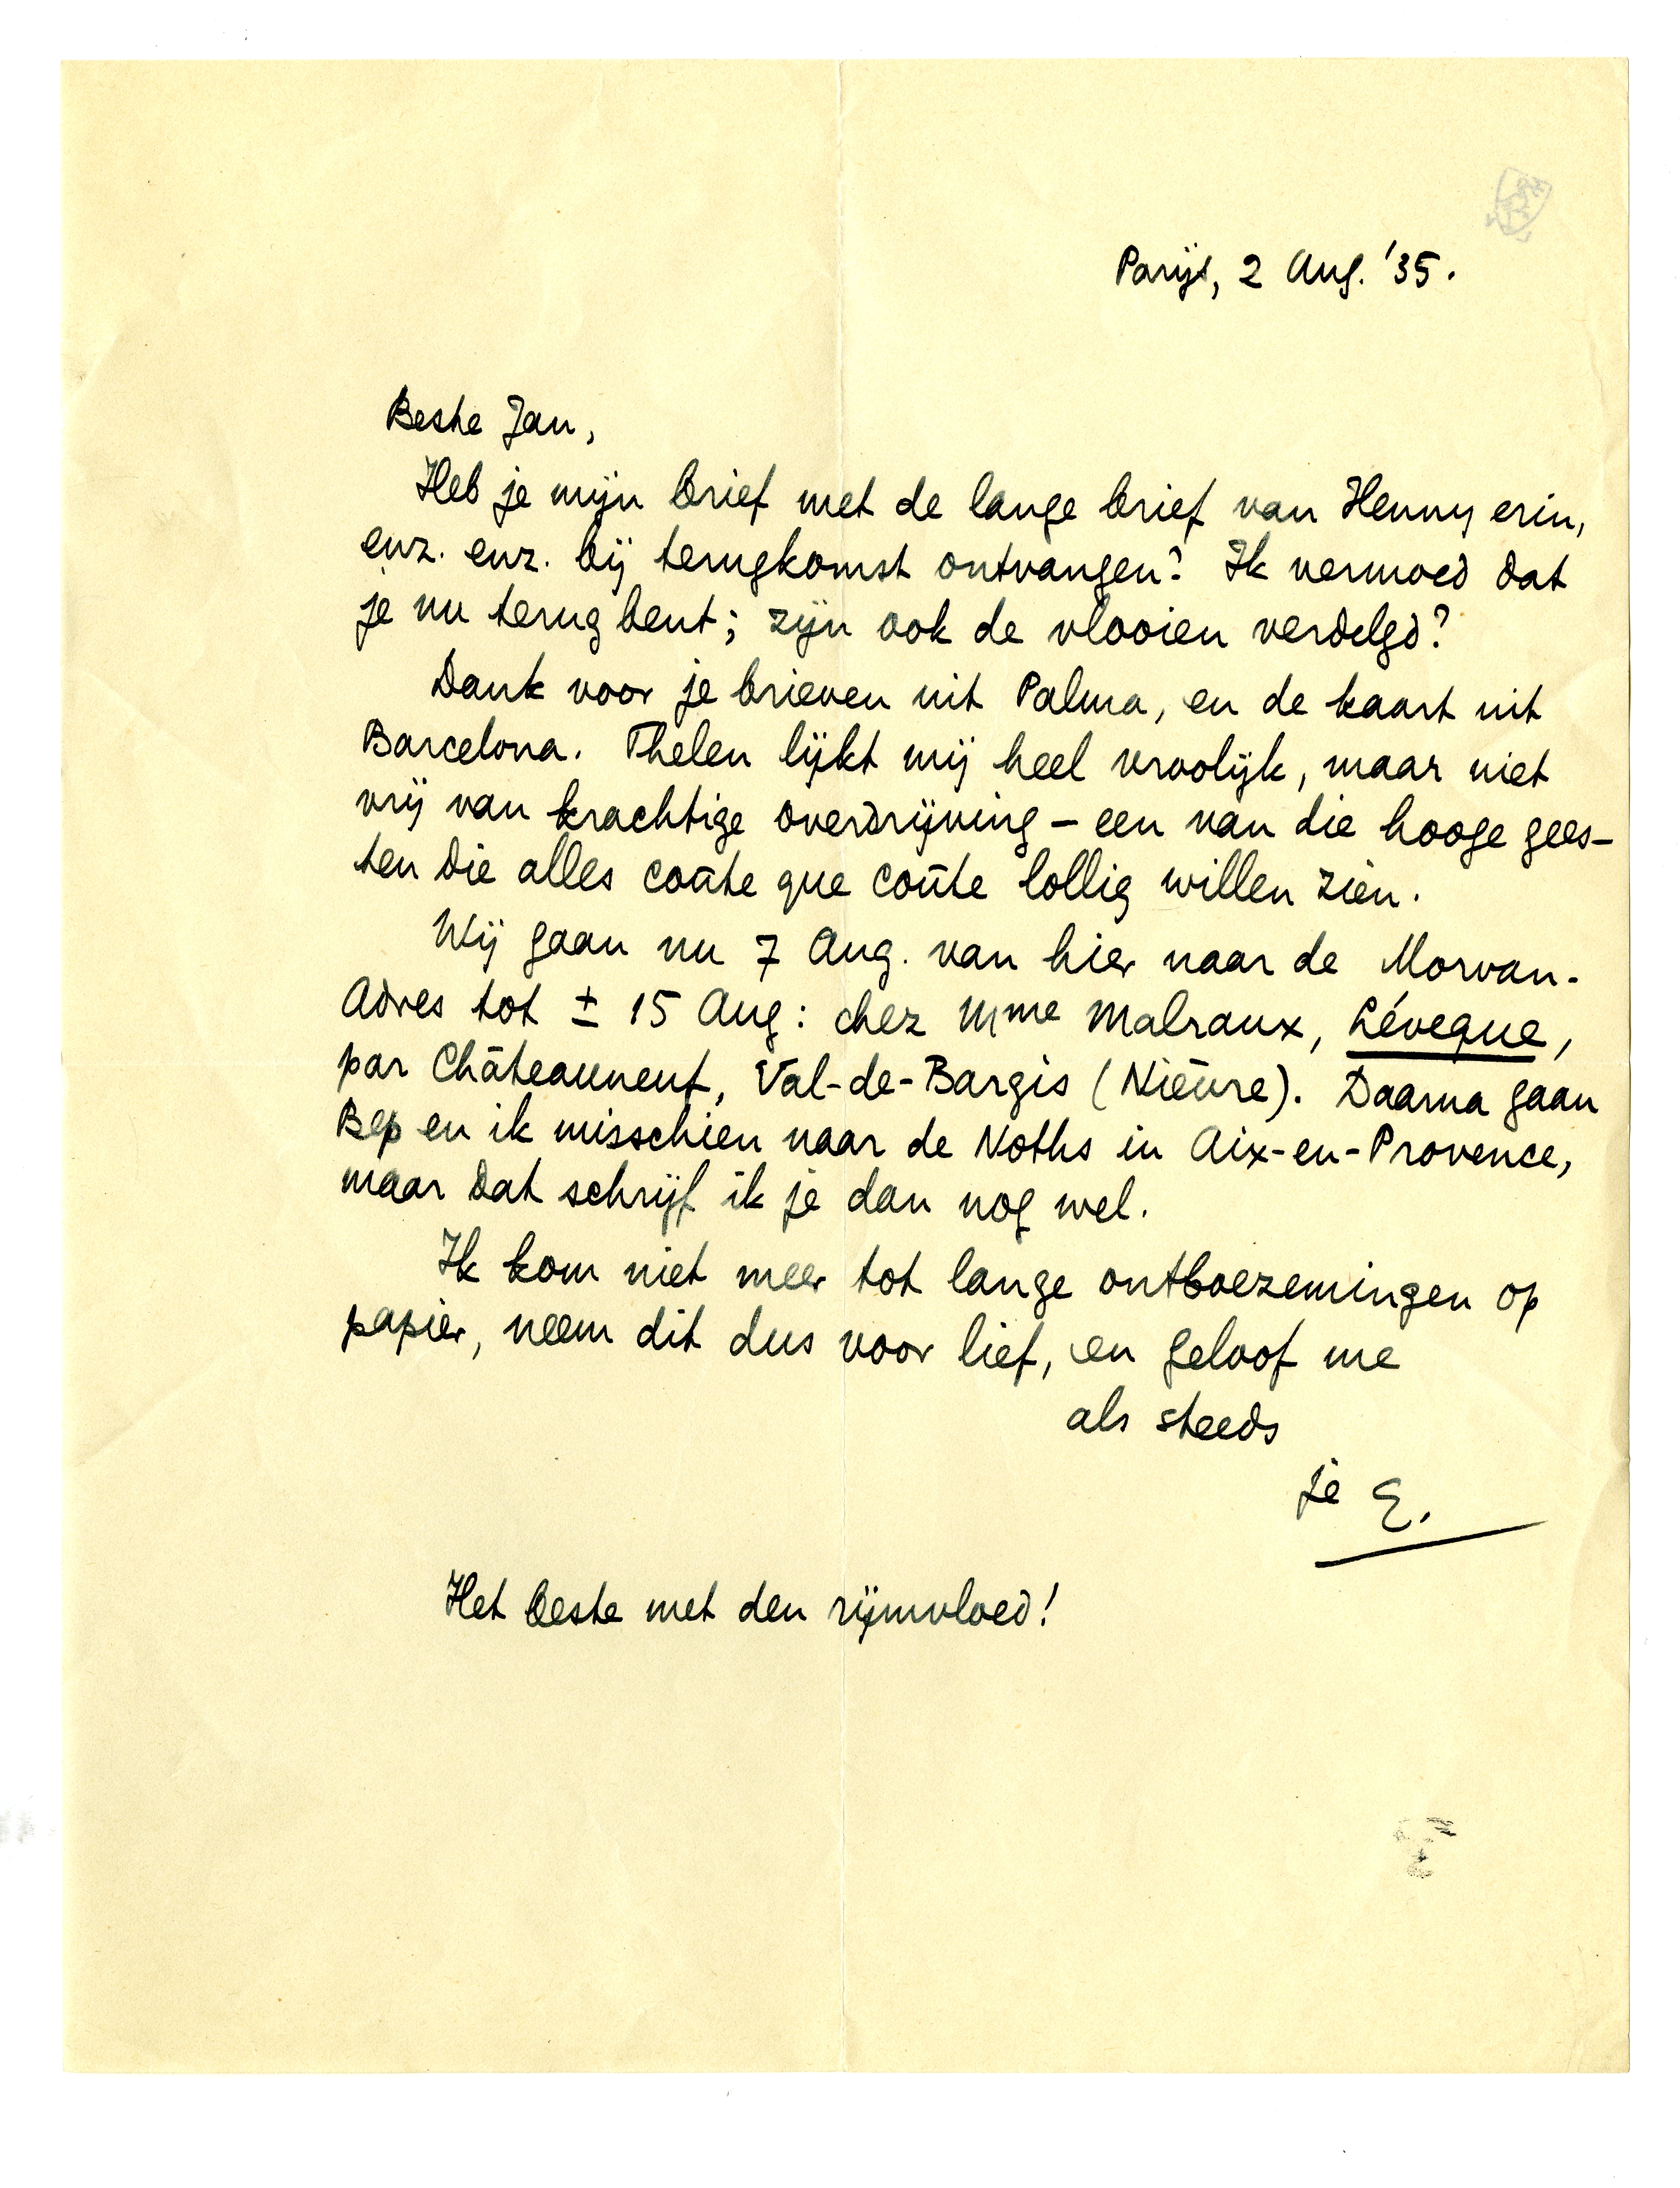 Parijs, 2 Aug. '35.
Beste Jan,
Heb je mijn brief met de lange brief van Henny erin,
enz. enz. bij terugkomst ontvangen? Ik vermoed dat
je nu terug bent; zijn ook de vlooien verdelgd?
Dank voor je brieven uit Palma, en de kaart uit
Barcelona. Thelen lijkt mij heel vroolijk, maar niet
vrij van krachtige overdrijving – een van die hooge gees-
ten die alles coûte que coûte lollig willen zien.
Wij gaan nu 7 Aug. van hier naar de Morvan.
Adres tot ± 15 Aug: chez Mme Malraux, Léveque,
par Châteauneuf, Val-de-Bargis (Nièvre). Daarna gaan
Bep en ik misschien naar de Noths in Aix-en-Provence,
maar dat schrijf ik je dan nog wel.
Ik kom niet meer tot lange ontboezemingen op
papier, neem dit dus voor lief, en geloof me
als steeds
je E.
Het beste met den rijmvloed!